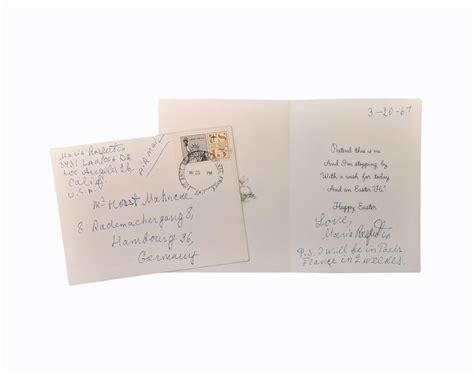 Los Angeles 26
Calif
U.S.A.
AIR MAIL
Mr Horst Mahncke
8 Rademachergang 8,
Hambourg 36,
Germany
PM
3-20-67
Pretend this is me
And I'm stopping by
With a wish for today
And an Easter "Hi".
Happy Easter
Love,
Maria
P.S. I will be in Paris
France in 2 weekes.